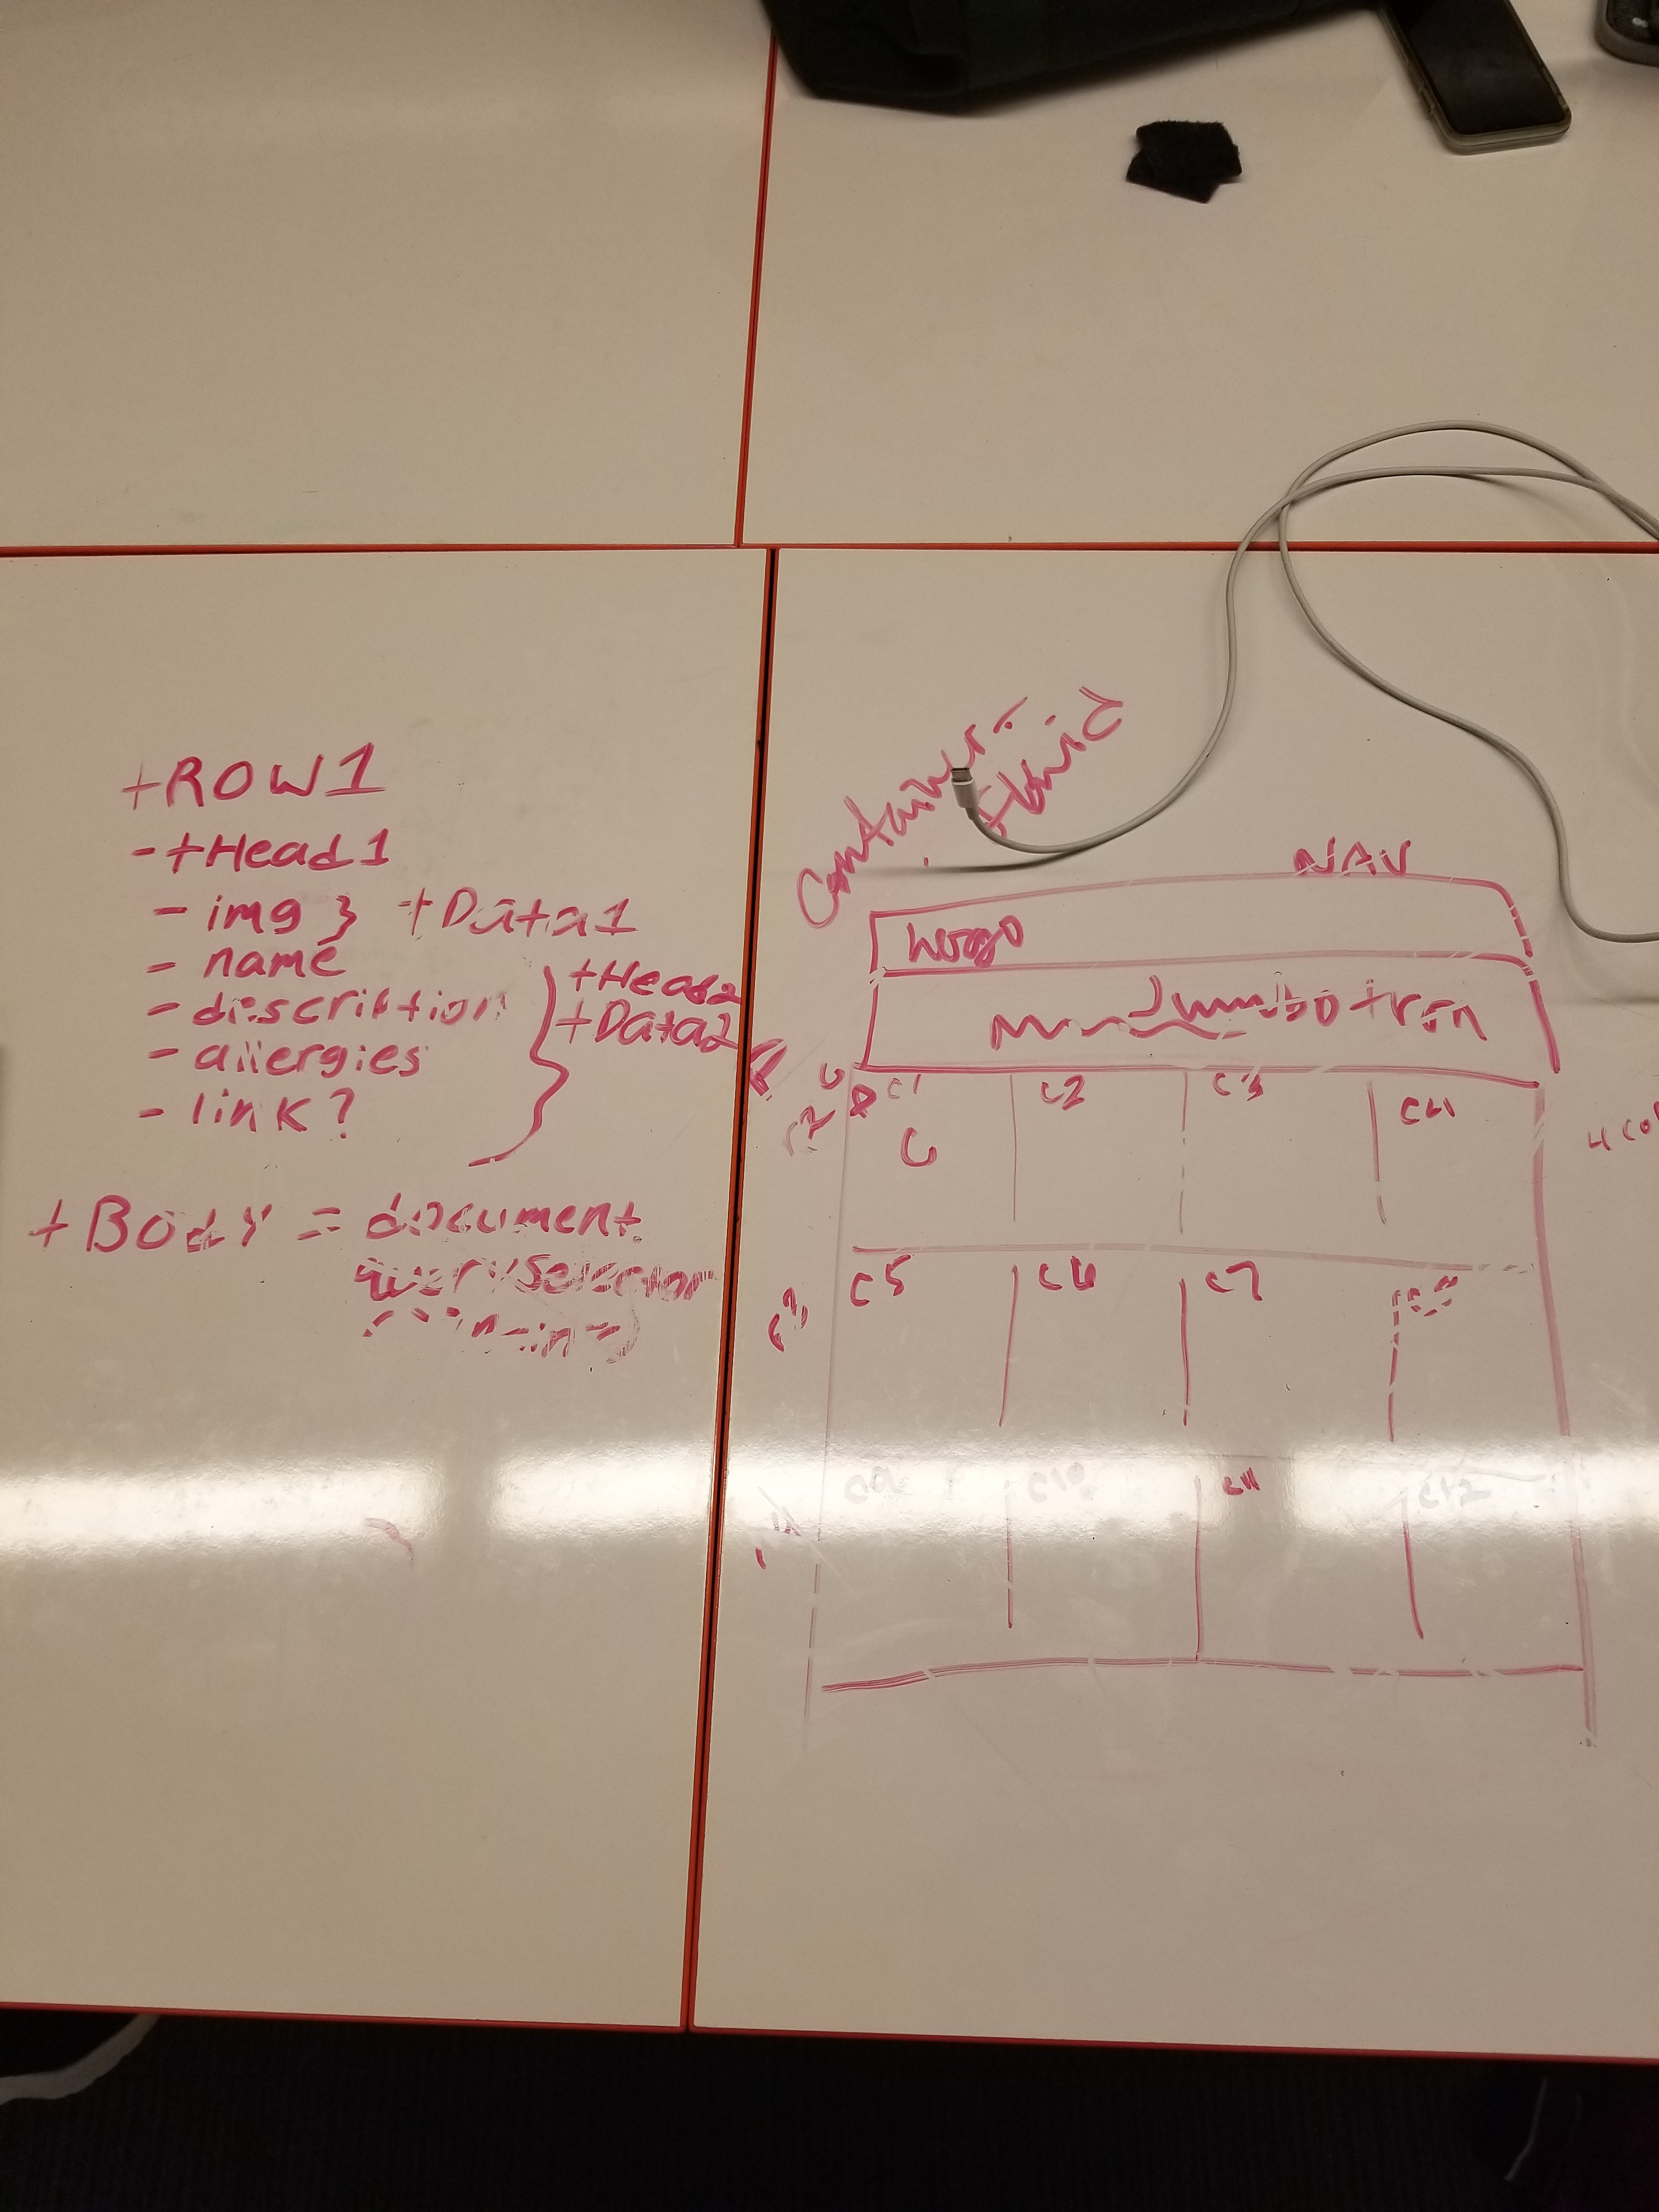 +ROW1
-+Head1
- img } +Data1
- name
- description
- allergies
- link?
+Head2
+Data2
+Body = document.
querySelector
container-
fluid
NAV
Logo
Jumbotron
C1 C2 C3 C4
r2
C
4 col
C5 C6 C7
r3
C9 C10 C11 C12